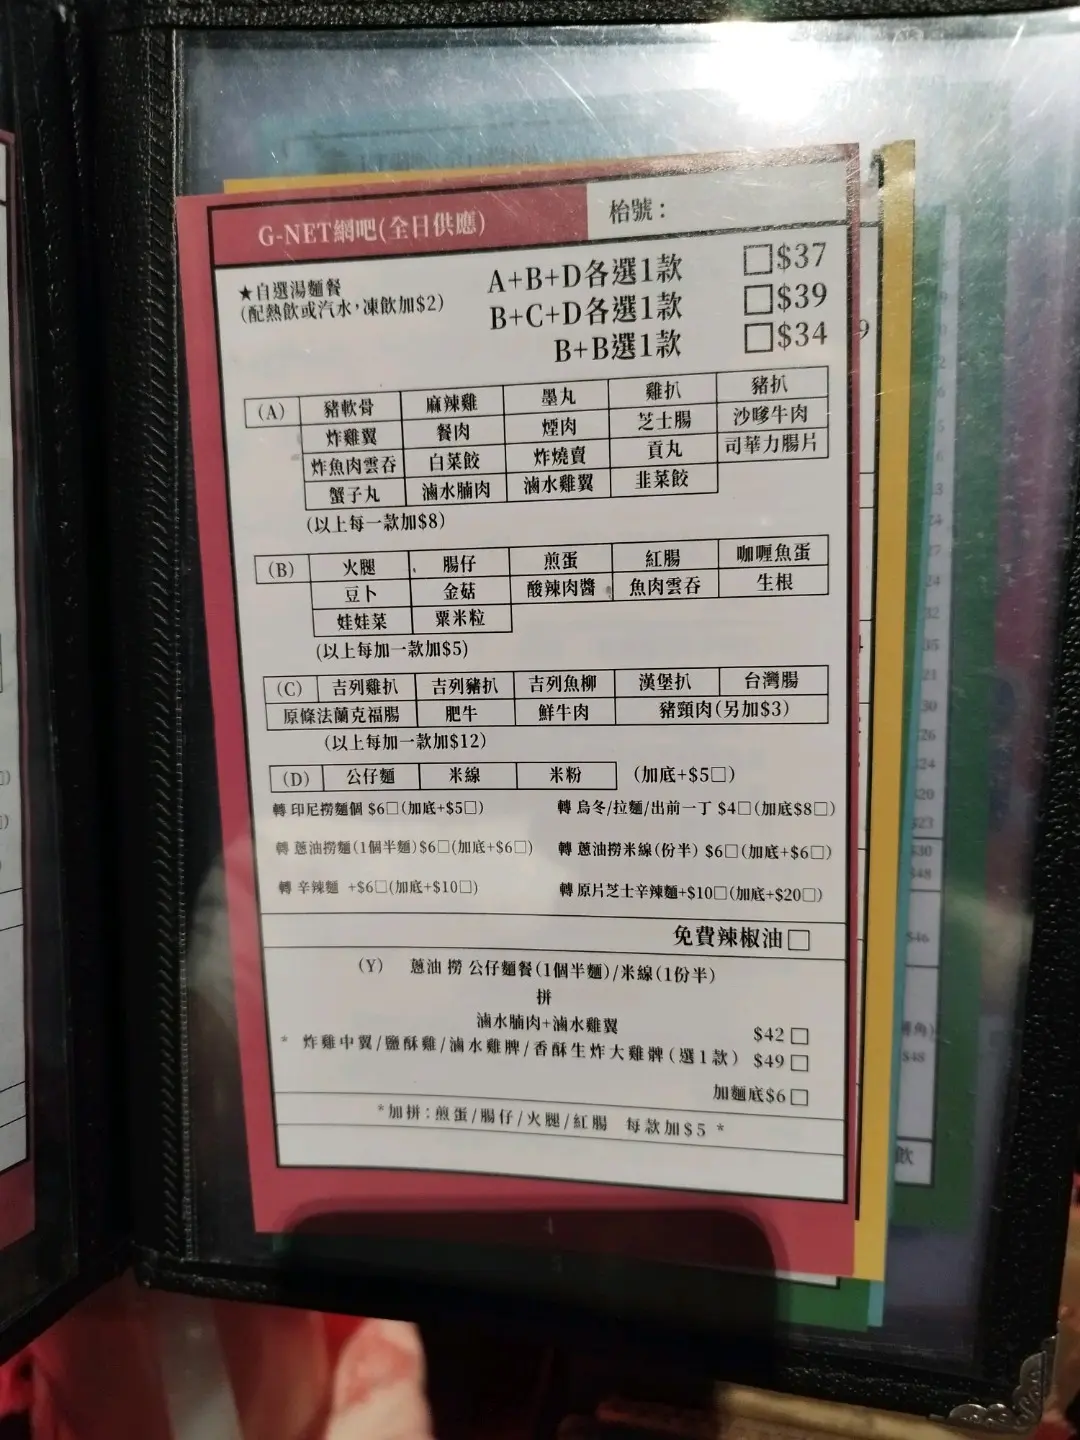 G-NET網吧(全日供應)
枱號：
★自選湯麵餐
(配熱飲或汽水，凍飲加$2)
A+B+D各選1款 □$37
B+C+D各選1款 □$39
B+B選1款 □$34
(A) 豬軟骨 麻辣雞 墨丸 雞扒 豬扒
炸雞翼 餐肉 煙肉 芝士腸 沙嗲牛肉
炸魚肉雲吞 白菜餃 炸燒賣 貢丸 司華力腸片
蟹子丸 滷水腩肉 滷水雞翼 韭菜餃
(以上每一款加$8)
(B) 火腿 腸仔 煎蛋 紅腸 咖喱魚蛋
豆卜 金菇 酸辣肉醬 魚肉雲吞 生根
娃娃菜 粟米粒
(以上每加一款加$5)
(C) 吉列雞扒 吉列豬扒 吉列魚柳 漢堡扒 台灣腸
原條法蘭克福腸 肥牛 鮮牛肉 豬頸肉(另加$3)
(以上每加一款加$12)
(D) 公仔麵 米線 米粉 (加底+$5□)
轉 印尼撈麵個 $6□(加底+$5□) 轉 烏冬/拉麵/出前一丁 $4□(加底$8□)
轉 蔥油撈麵(1個半麵)$6□(加底+$6□) 轉 蔥油撈米線(份半) $6□(加底+$6□)
轉 辛辣麵 +$6□(加底+$10□) 轉 原片芝士辛辣麵+$10□(加底+$20□)
免費辣椒油□
(Y) 蔥油 撈 公仔麵餐(1個半麵)/米線(1份半)
拼
滷水腩肉+滷水雞翼 $42□
* 炸雞中翼/鹽酥雞/滷水雞髀/香酥生炸大雞髀(選1款) $49□
加麵底$6□
*加拼：煎蛋/腸仔/火腿/紅腸 每款加$5 *